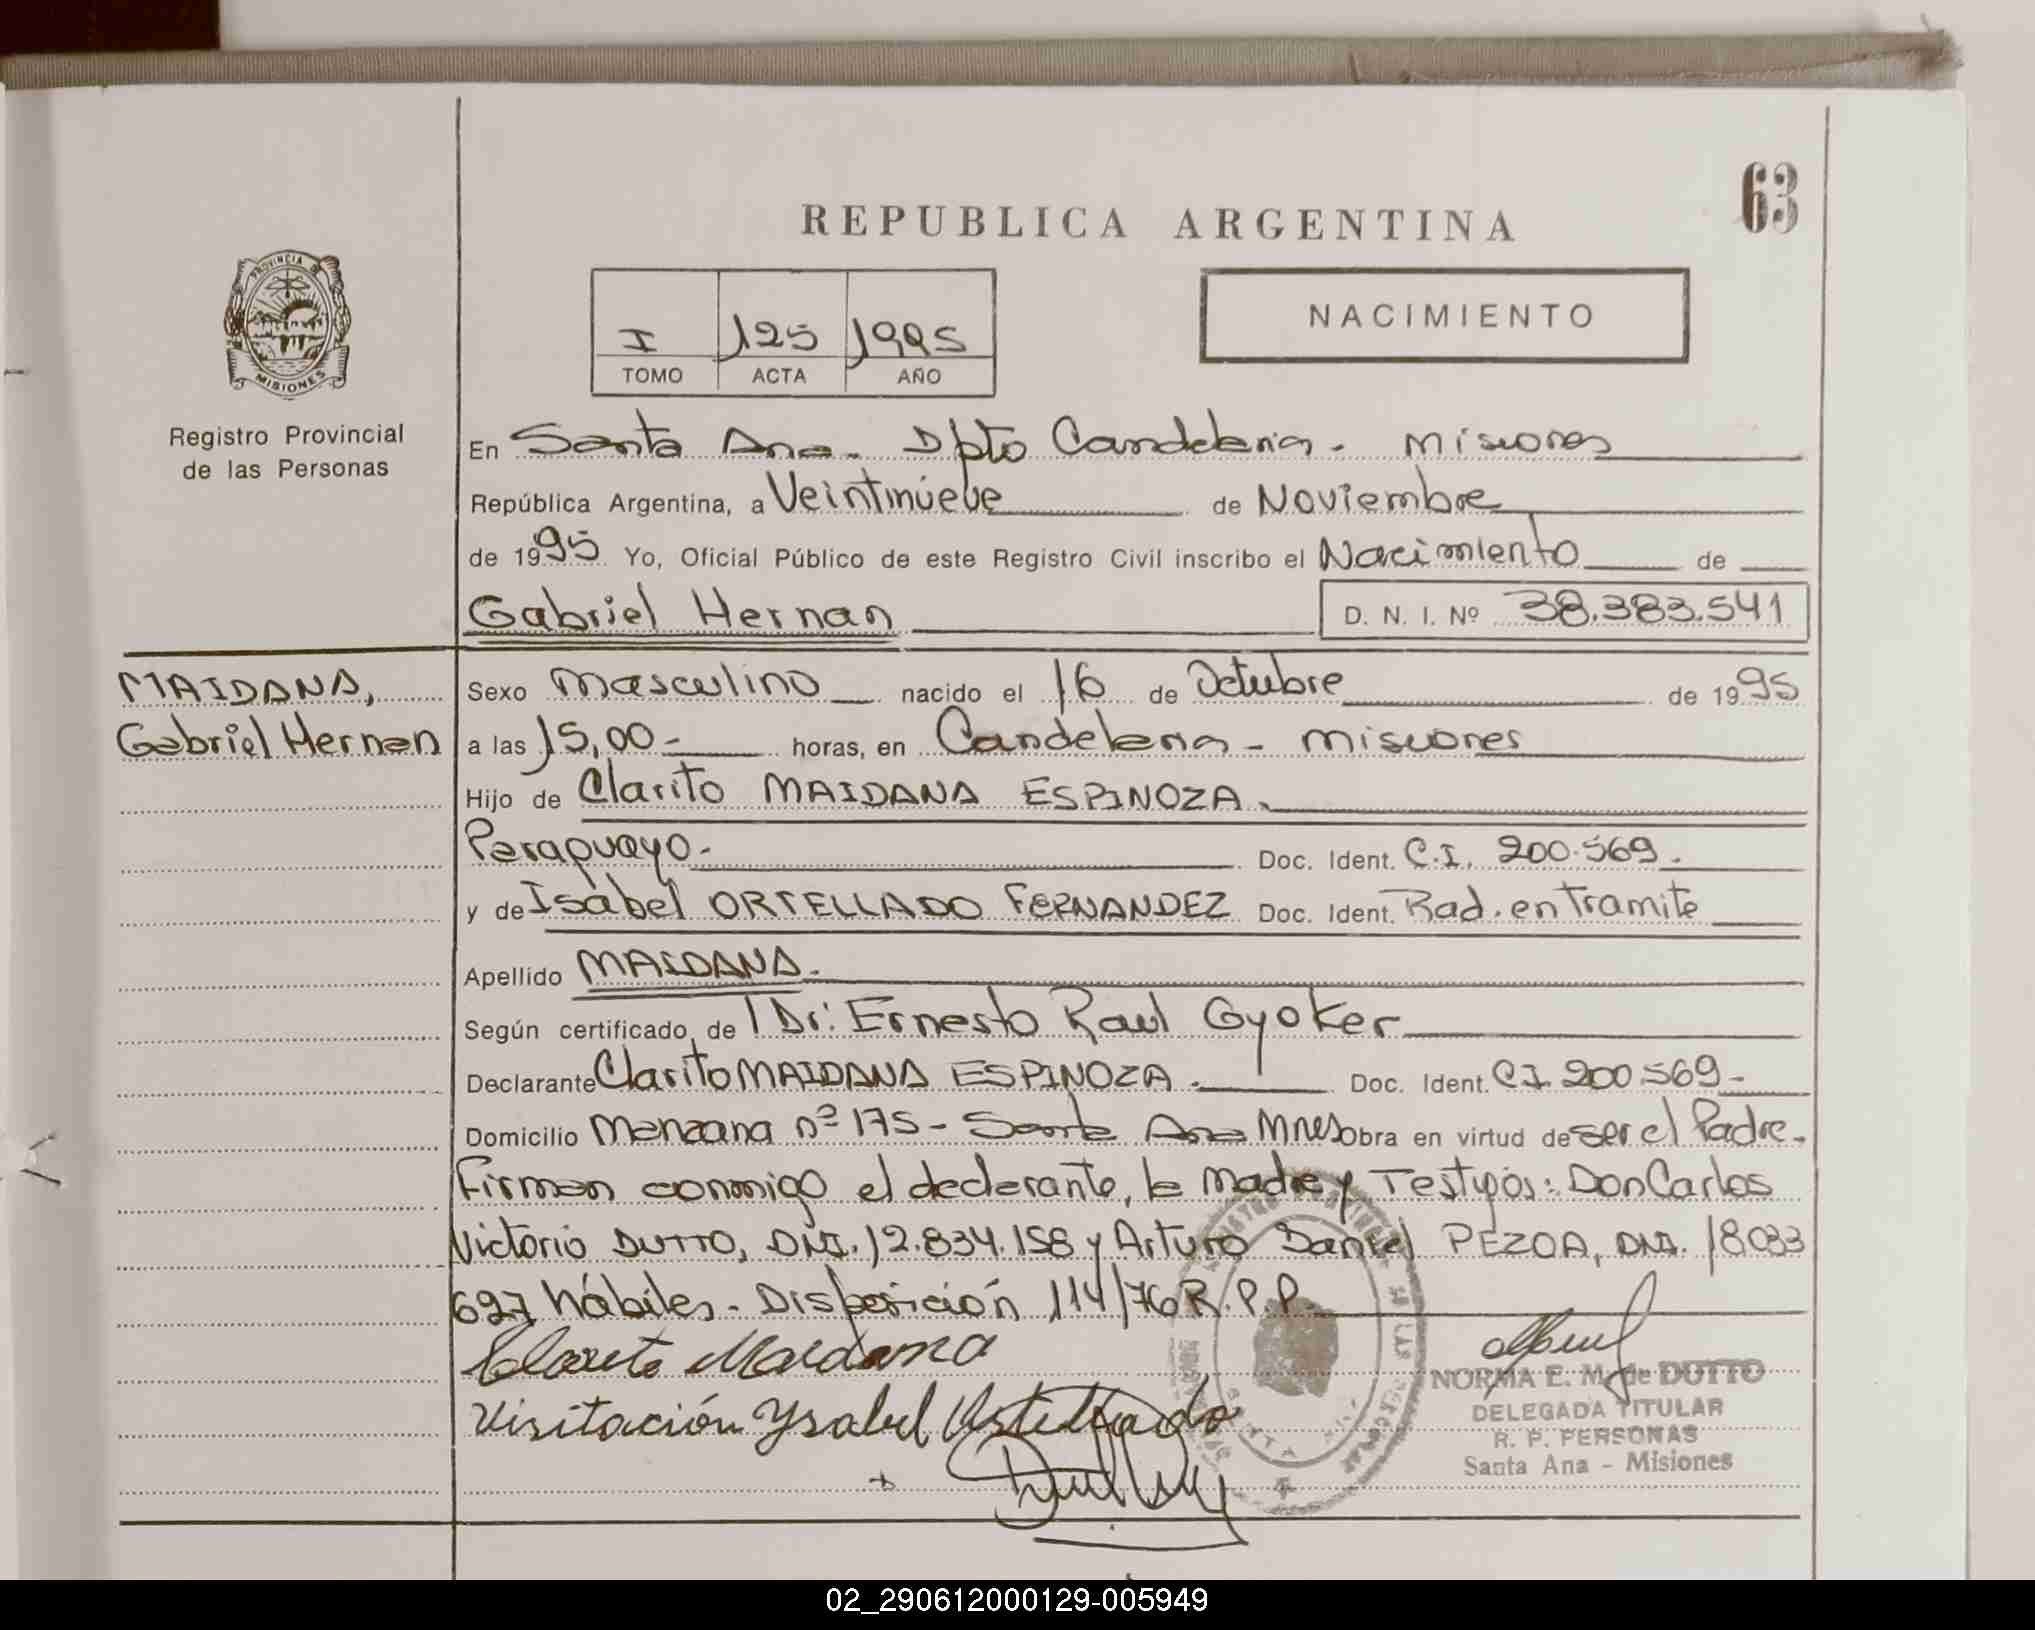 63
REPUBLICA ARGENTINA
PROVINCIA DE
MISIONES
I 125 1995
TOMO ACTA AÑO
NACIMIENTO
Registro Provincial
de las Personas
En Santa Ana. Dpto Candelaria. Misiones
República Argentina, a Veintinueve de Noviembre
de 1995 Yo, Oficial Público de este Registro Civil inscribo el Nacimiento de
Gabriel Hernan D. N. I. Nº 38.383.541
MAIDANA,
Gabriel Hernan
Sexo Masculino nacido el 16 de Octubre de 1995
a las 15,00- horas, en Candelaria - Misiones
Hijo de Clarito MAIDANA ESPINOZA.
Paraguayo. Doc. Ident. C.I. 200.569.
y de Isabel ORTELLADO FERNANDEZ Doc. Ident. Rad. en Tramite
Apellido MAIDANA.
Según certificado de l Dr: Ernesto Raul Gyoker
Declarante Clarito MAIDANA ESPINOZA. Doc. Ident. C.I. 200.569-
Domicilio Manzana nº 175 - Santa Ana Mnes obra en virtud de ser el Padre.
Firman conmigo el declarante, la Madre y Testigos: Don Carlos
Victorio DUTTO, DNI. 12.834.158 y Arturo Daniel PEZOA, DNI. 18083
627 hábiles. Disposición 114/76 R.P.P.
Clarito Maidana
Visitación Ysabel Ortellado
NORMA E. M. de DUTTO
DELEGADA TITULAR
R. P. PERSONAS
Santa Ana - Misiones
02_290612000129-005949